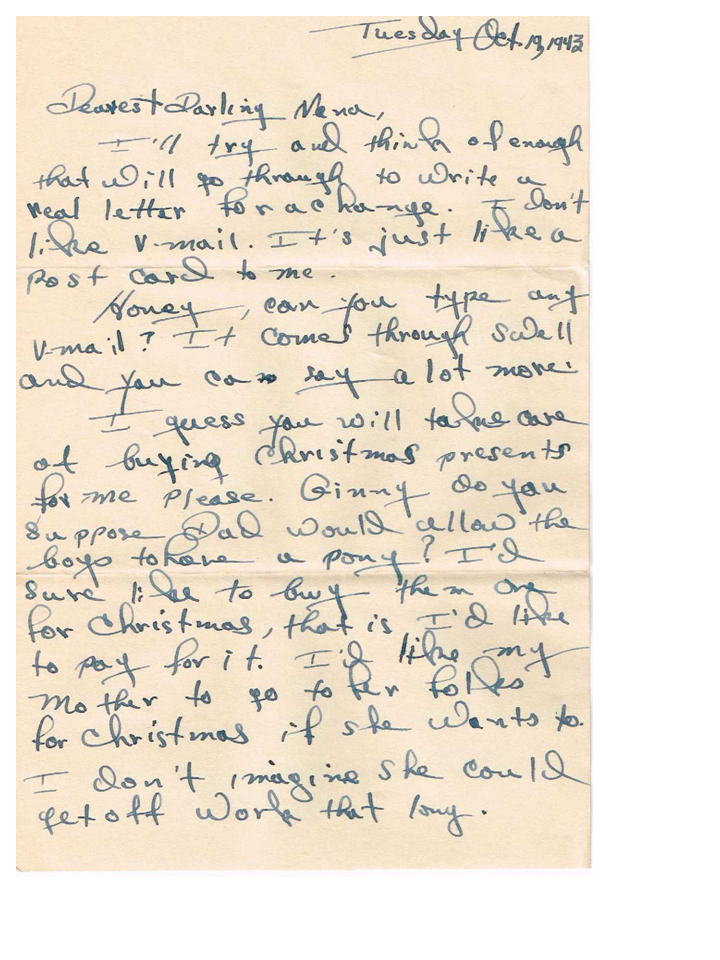 Tuesday Oct. 19, 1943
Dearest Darling Nena,
I'll try and think of enough
that will go through to write a
real letter for a change. I don't
like V-mail. It's just like a
post card to me.
Honey, can you type any
V-mail? It comes through swell
and you can say a lot more.
I guess you will take care
of buying Christmas presents
for me please. Ginny do you
suppose Dad would allow the
boys to have a pony? I'd
sure like to buy them one
for Christmas, that is I'd like
to pay for it. I'd like my
mother to go to her folks
for Christmas if she wants to.
I don't imagine she could
get off work that long.